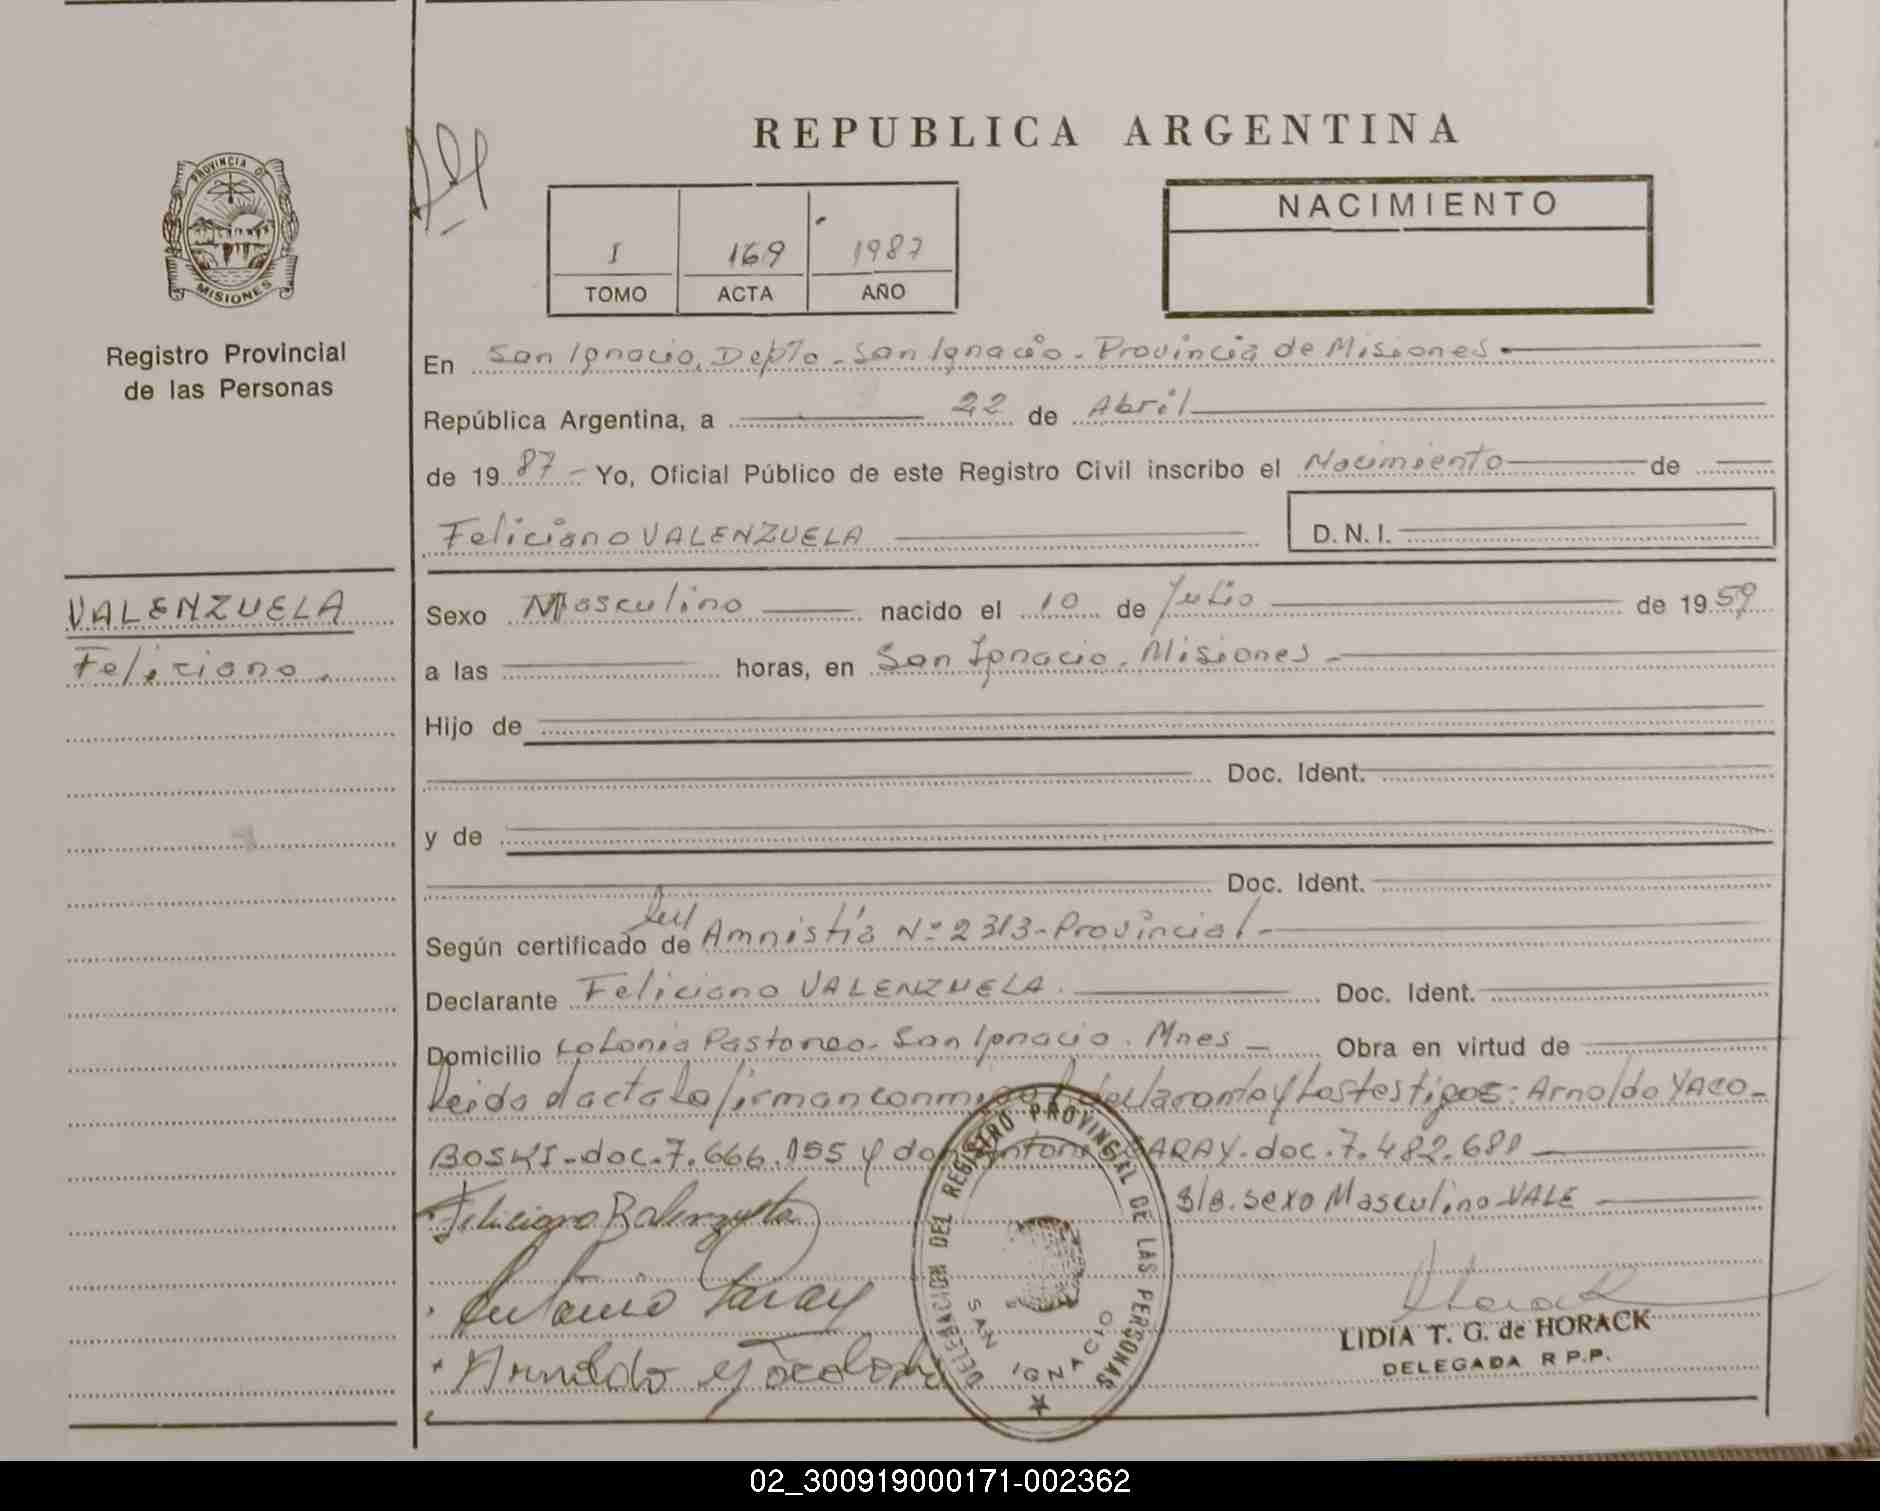 REPUBLICA ARGENTINA
PROVINCIA DE
MISIONES
Registro Provincial
de las Personas
I 169 1987
TOMO ACTA AÑO
NACIMIENTO
En San Ignacio, Depto. San Ignacio. Provincia de Misiones.
República Argentina, a 22 de Abril
de 19 87 - Yo, Oficial Público de este Registro Civil inscribo el Nacimiento de
Feliciano VALENZUELA D. N. I.
VALENZUELA
Feliciano.
Sexo Masculino nacido el 10 de Julio de 19 59
a las horas, en San Ignacio. Misiones -
Hijo de
Doc. Ident.
y de
Doc. Ident.
Según certificado de Ley Amnistía Nº 2313-Provincial-
Declarante Feliciano VALENZUELA. Doc. Ident.
Domicilio Colonia Pastoreo. San Ignacio. Mnes - Obra en virtud de
leida el acta la firman conmigo el declarante y los testigos: Arnoldo YACO-
BOSKI-doc.7.666.155 y don Antonio GARAY.doc.7.482.681
S/B. sexo Masculino-VALE
Feliciano Balenzuela
Antonio Garay
Arnoldo
DELEGACION DEL REGISTRO PROVINCIAL DE LAS PERSONAS
SAN IGNACIO
LIDIA T. G. de HORACK
DELEGADA R P.P.
02_300919000171-002362